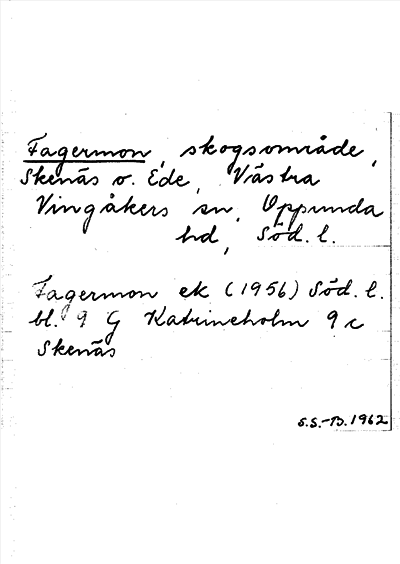 Fagermon, skogsområde,
Skenäs o. Ede, Västra
Vingåkers sn, Oppunda
hd, Söd. l.
Fagermon ek (1956) Söd. l.
bl. 9 G Katrineholm 9 c
Skenäs
S.S.-B. 1962